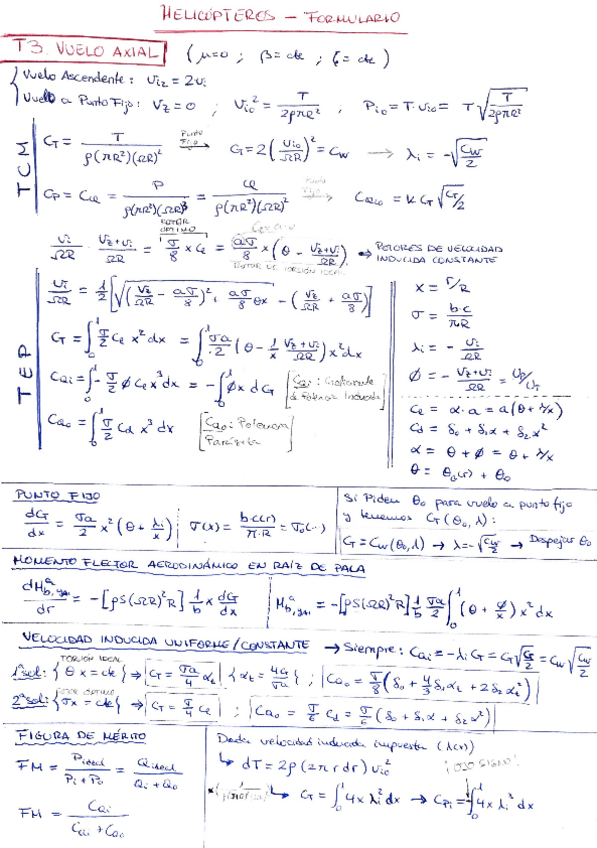 HELICÓPTEROS - FORMULARIO
T3. VUELO AXIAL ( μ=0 ; β=cte ; ζ=cte )
Vuelo Ascendente: Vi2 = 2Vi
Vuelo a Punto Fijo: Vz=0 ; Vio² = T/(2ρπR²) , Pio = T·Vio = T√(T/(2ρπR²))
TCM
CT = T/(ρ(πR²)(ΩR)²) Punto Fijo → CT = 2(Vio/ΩR)² = CW → λi = -√(CW/2)
CP = CQ = P/(ρ(πR²)(ΩR)³) = Q/(ρ(πR²)(ΩR)²) Punto Fijo → CQio = k CT √(CT/2)
Vi/ΩR · (Vz+Vi)/ΩR = σ/8 x Cl = aσ/8 x (θ - (Vz+Vi)/ΩR) → ROTORES DE VELOCIDAD INDUCIDA CONSTANTE
ROTOR ÓPTIMO
ROTOR DE TORSIÓN IDEAL
TEP
Vi/ΩR = 1/2 [√((Vz/ΩR - aσ/8)² + aσ/8 θx) - (Vz/ΩR + aσ/8)]
CT = ∫₀¹ σ/2 Cl x² dx = ∫₀¹ σa/2 (θ - 1/x (Vz+Vi)/ΩR) x² dx
CQi = ∫₀¹ -σ/2 ϕ Cl x³ dx = -∫₀¹ ϕx dCT [CQi: Coeficiente de Potencia Inducida]
CQo = ∫₀¹ σ/2 Cd x³ dx [CQo: Potencia Parásita]
x = r/R
σ = b·c/πR
λi = - Vi/ΩR
ϕ = - (Vz+Vi)/ΩR = UP/UT
Cl = α·a = a(θ + λ/x)
Cd = δ0 + δ1α + δ2α²
α = θ + ϕ = θ + λ/x
θ = θG(r) + θ0
PUNTO FIJO
dCT/dx = σa/2 x² (θ + λi/x) ; σ(x) = b·c(r)/π·R = σ0(··)
Si Piden θ0 para vuelo a punto fijo
y tenemos CT(θ0, λ):
CT = CW(θ0, λ) → λ = -√(CW/2) → Despejar θ0
MOMENTO FLECTOR AERODINÁMICO EN RAÍZ DE PALA
= -[ρS(ΩR)²R] 1/b x dCT/dx
= -[ρS(ΩR)²R] 1/b σa/2 ∫₀¹ (θ + ϕ/x) x² dx
VELOCIDAD INDUCIDA UNIFORME/CONSTANTE → Siempre: CQi = -λi CT = CT √(CT/2) = CW √(CW/2)
TORSIÓN IDEAL
1ªsol: {θx = cte} ⇒ CT = σa/4 αt {αt = 4CT/σa} ; CQo = σ/8 (δ0 + 4/3 δ1αt + 2δ2αt²)
ROTOR ÓPTIMO
2ªsol: {σx = cte} ⇒ CT = σ/4 Cl ; CQo = σ/6 Cd = σ/6 (δ0 + δ1α + δ2α²)
FIGURA DE MÉRITO
FM = Pideal/(Pi + Po) = Qideal/(Qi + Qo)
FM = CQi/(CQi + CQo)
Dada velocidad inducida impuesta (λ(x))
↳ dT = 2ρ(2πrdr) Vio²
¡OJO SIGNO!
↳ CT = ∫₀¹ 4x λi² dx → CPi = -∫₀¹ 4x λi³ dx